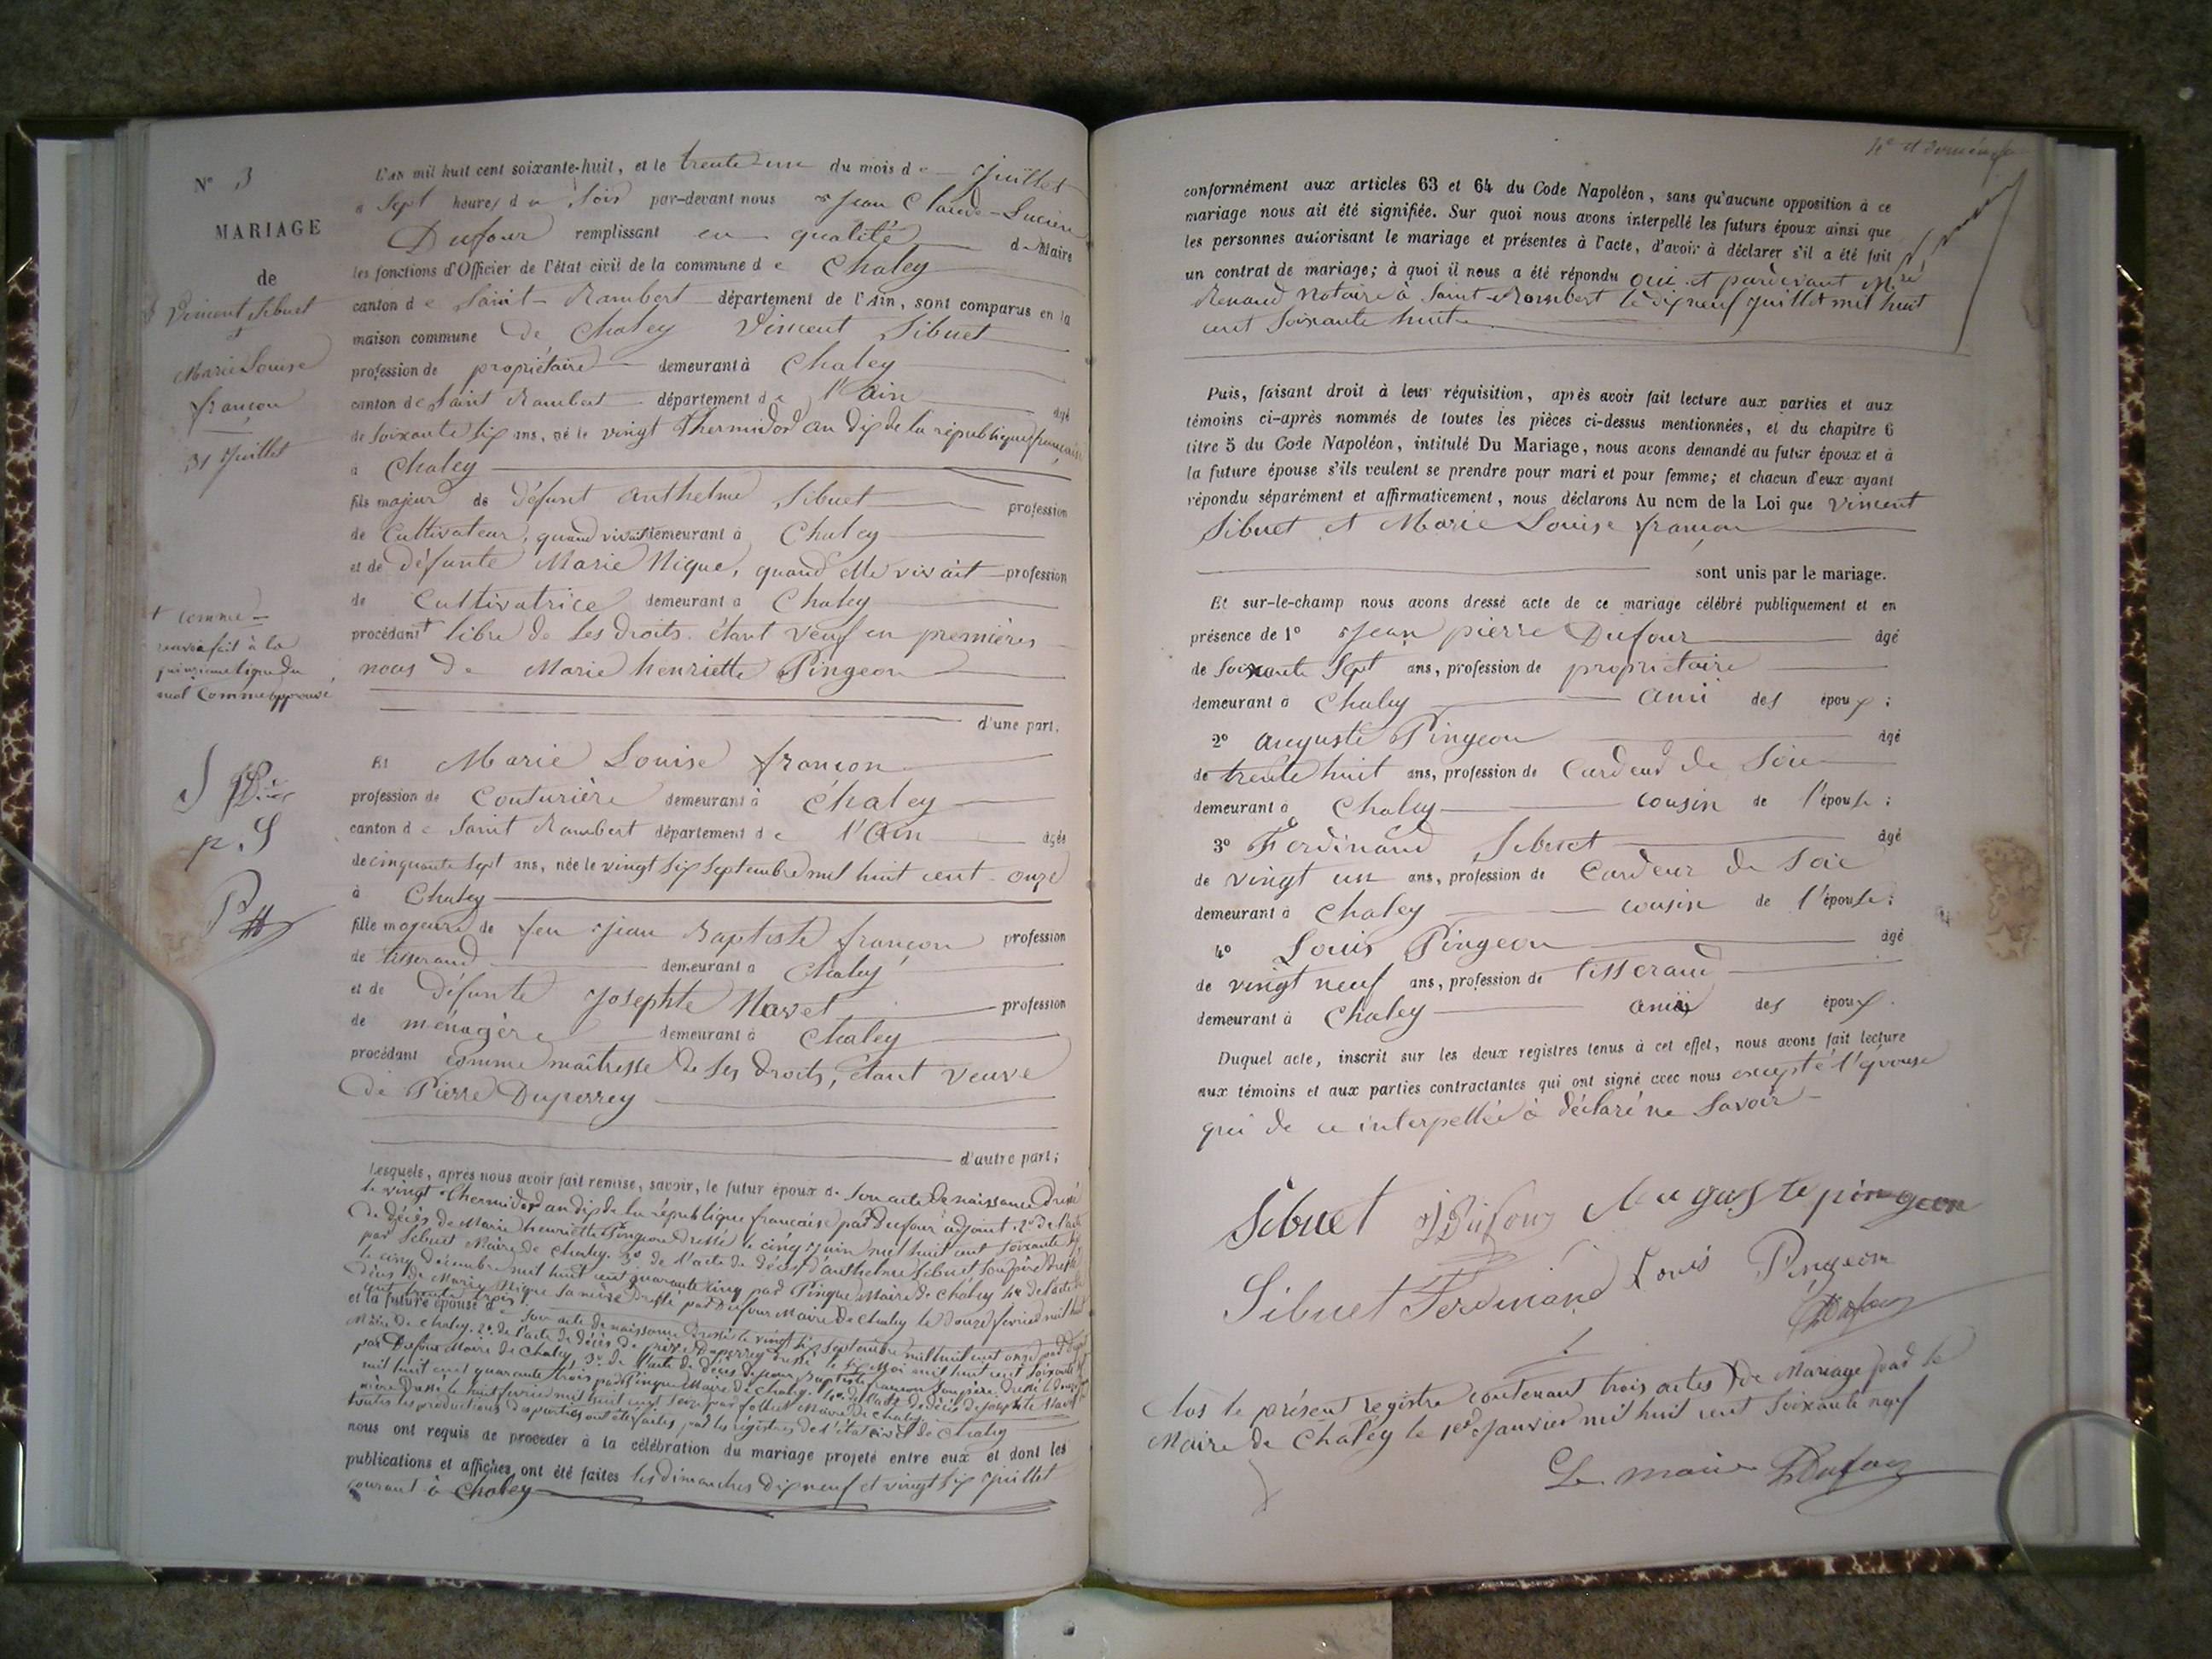 N° 3
MARIAGE
de
Vincent Sibuet
et
Marie Louise
françon
31 Juillet
L'an mil huit cent soixante-huit, et le trente-un du mois de Juillet
a Sept heures du soir par-devant nous Jean Claude-Lucien
Dufour remplissant en qualité de Maire
les fonctions d'Officier de l'état civil de la commune de Chaley
canton de Saint-Rambert département de l'Ain, sont comparus en la
maison commune de Chaley Vincent Sibuet
profession de propriétaire demeurant à Chaley
canton de Saint Rambert département de l'Ain âgé
de soixante six ans, né le vingt Thermidor an dix de la république française
à Chaley
fils majeur de défunt Anthelme Sibuet profession
de Cultivateur, quand vivait demeurant à Chaley
et de défunte Marie Nique, quand elle vivait profession
de Cultivatrice demeurant à Chaley
+ comme
renvoi fait à la
ligne du
mot Comme approuvé
procédant + libre de ses droits étant veuf en premières
noces de Marie henriette Pingeon
d'une part.
Et Marie Louise françon
profession de Couturière demeurant à Chaley
canton de Saint Rambert département de l'Ain âgée
de cinquante sept ans, née le vingt six Septembre mil huit cent onze
à Chaley
fille majeure de feu Jean Baptiste françon profession
de tisserand demeurant à Chaley
et de défunte Josephte Navet profession
de ménagère demeurant à Chaley
procédant comme maîtresse de ses droits, étant veuve
de Pierre Duperrey
d'autre part;
Lesquels, après nous avoir fait remise, savoir, le futur époux de son acte de naissance dressé
le vingt Thermidor an dix de la république française par Dufour adjoint. 2° de l'acte
de décès de Marie henriette Pingeon dressé le cinq Juin mil huit cent soixante
par Sibuet Maire de Chaley. 3° de l'acte de décès d'Anthelme Sibuet son père dressé
le cinq décembre mil huit cent quarante cinq par Pingue Maire de Chaley 4° de l'acte de
décès de Marie Nique sa mère dressé par Dufour Maire de Chaley le douze février mil huit
cent trente trois.
et la future épouse de son acte de naissance dressé le vingt six Septembre mil huit cent onze par
Maire de Chaley. 2° de l'acte de décès de Pierre Duperrey dressé le six Mai mil huit cent soixante
par Dufour Maire de Chaley 3° de l'acte de décès de Jean Baptiste françon son père dressé le douze
mil huit cent quarante trois par Pingue Maire de Chaley. 4° de l'acte de décès de Josephte Navet
mère dressé le huit février mil huit cent seize par Maire de Chaley
toutes les productions des parties ont été faites par les registres de l'état civil de Chaley
nous ont requis de procéder à la célébration du mariage projeté entre eux et dont les
publications et affiches ont été faites les dimanches dix neuf et vingt six Juillet
courant à Chaley
conformément aux articles 63 et 64 du Code Napoléon, sans qu'aucune opposition à ce
mariage nous ait été signifiée. Sur quoi nous avons interpellé les futurs époux ainsi que
les personnes autorisant le mariage et présentes à l'acte, d'avoir à déclarer s'il a été fait
un contrat de mariage; à quoi il nous a été répondu oui et pardevant Me
Renaud Notaire à Saint-Rambert le dix neuf Juillet mil huit
cent soixante huit
Puis, faisant droit à leur réquisition, après avoir fait lecture aux parties et aux
témoins ci-après nommés de toutes les pièces ci-dessus mentionnées, et du chapitre 6
titre 5 du Code Napoléon, intitulé Du Mariage, nous avons demandé au futur époux et à
la future épouse s'ils veulent se prendre pour mari et pour femme; et chacun d'eux ayant
répondu séparément et affirmativement, nous déclarons Au nom de la Loi que Vincent
Sibuet et Marie Louise françon
sont unis par le mariage.
Et sur-le-champ nous avons dressé acte de ce mariage célébré publiquement et en
présence de 1° Jean pierre Dufour âgé
de Soixante Sept ans, profession de propriétaire
demeurant à Chaley ami des époux;
2° Auguste Pingeon âgé
de trente huit ans, profession de Cardeur de Soie
demeurant à Chaley cousin de l'épouse;
3° Ferdinand Sibuet âgé
de vingt un ans, profession de Cardeur de Soie
demeurant à Chaley cousin de l'épouse;
4° Louis Pingeon âgé
de vingt neuf ans, profession de tisserand
demeurant à Chaley ami des époux.
Duquel acte, inscrit sur les deux registres tenus à cet effet, nous avons fait lecture
aux témoins et aux parties contractantes qui ont signé avec nous excepté l'épouse
qui de ce interpellée à déclaré ne Savoir
Sibuet JDufour Augustepingeon
Sibuet Ferdinand Louis Pingeon
Dufour
Clos le présent registre contenant trois actes de Mariage par le
Maire de Chaley le 1er Janvier mil huit cent Soixante neuf
Le maire Dufour